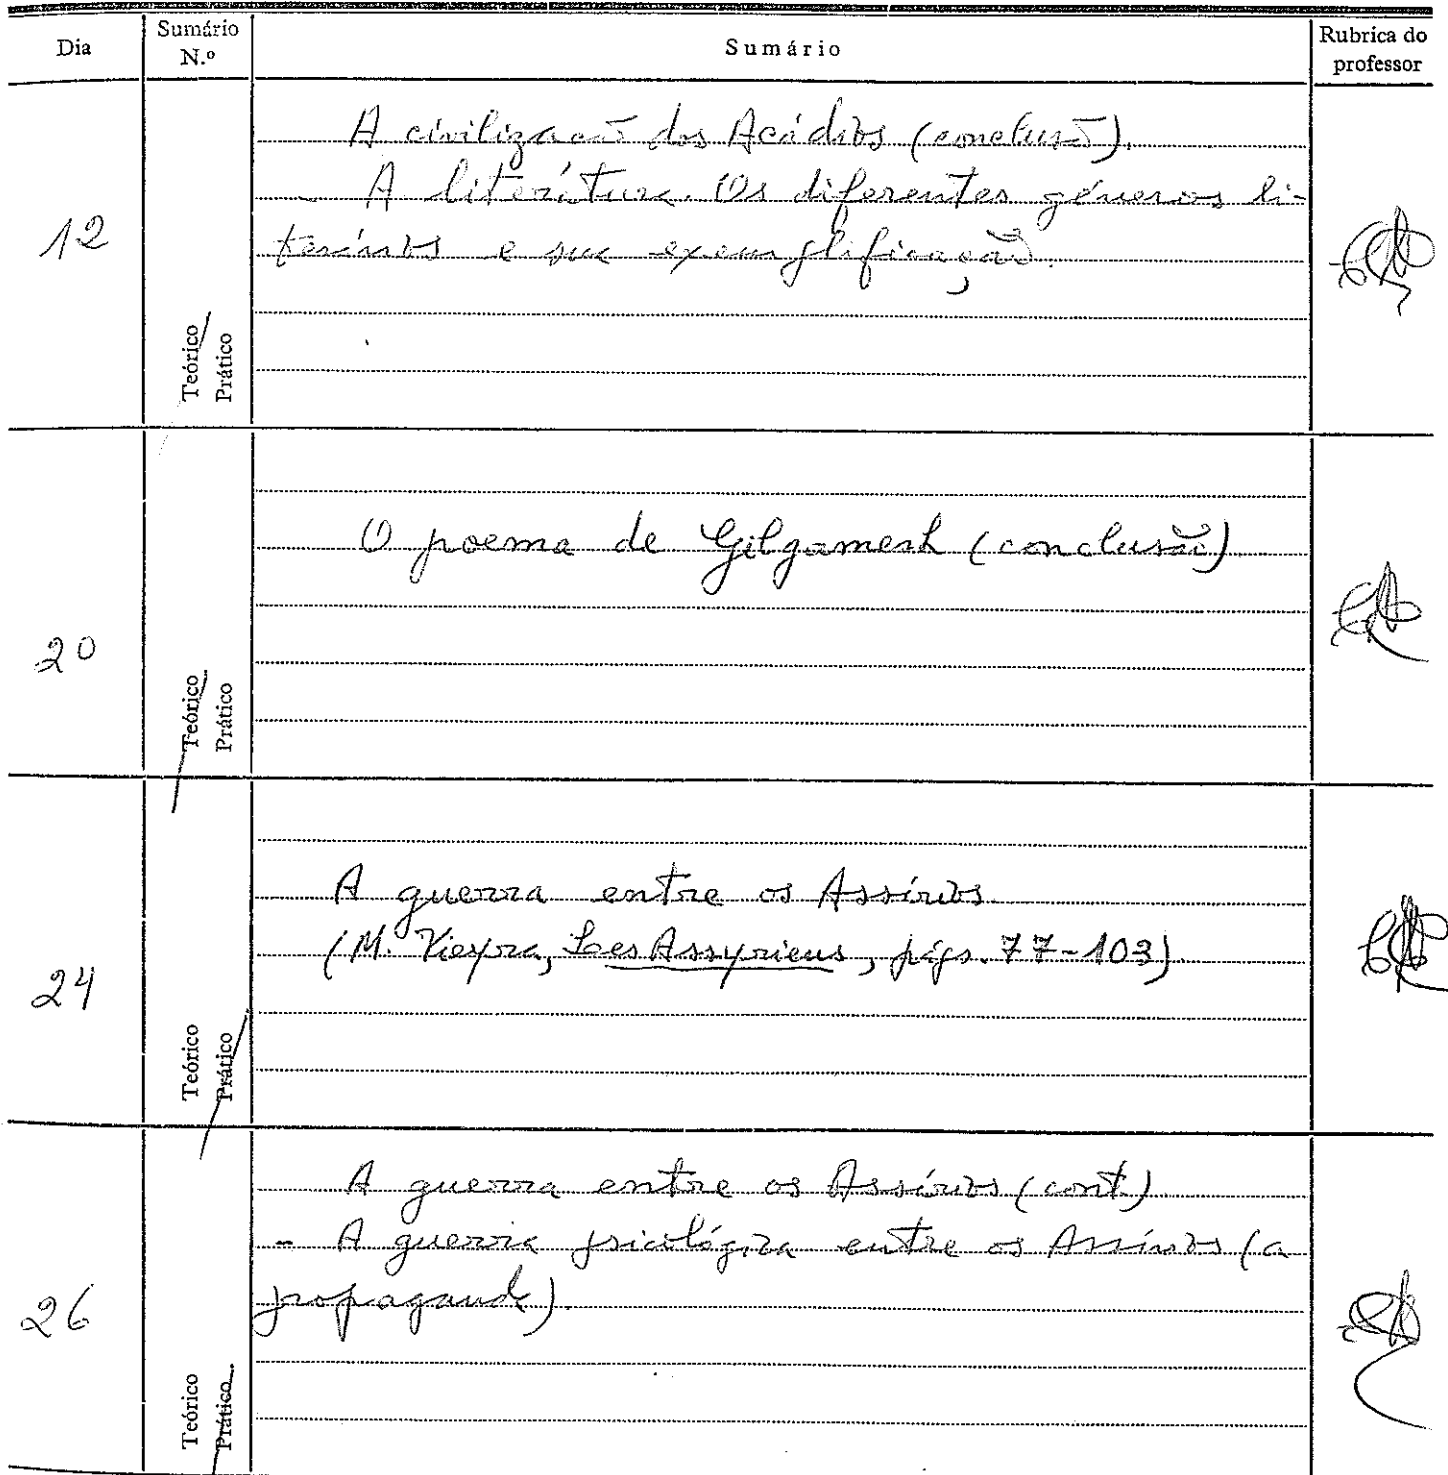 Dia Sumário N.º Sumário Rubrica do professor
A civilização dos Acádios (conclusão).
- A literatura. Os diferentes géneros li-
12 terários e sua exemplificação.
Teórico
Prático
O poema de Gilgamesh (conclusão)
20
Teórico
Prático
A guerra entre os Assírios.
(M. Vieyra, Les Assyriens, págs. 77-103)
24
Teórico
Prático
A guerra entre os Assírios (cont.)
- A guerra psicológica entre os Assírios (a
26 propaganda).
Teórico
Prático